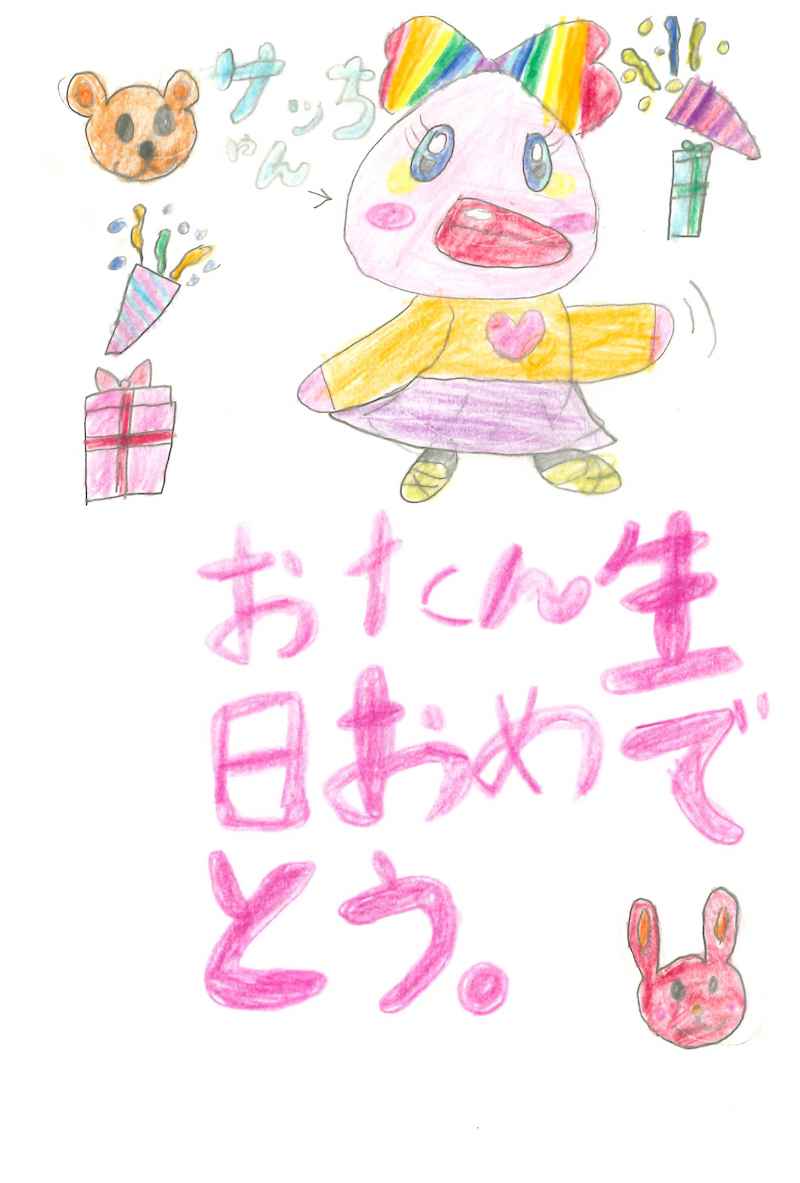 サッち
ゃん
おたん生
日おめで
とう。